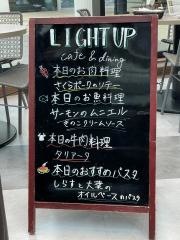 LIGHT UP
cafe & dining
本日のお肉料理
さくらポークのソテー
本日のお魚料理
サーモンのムニエル
きのこクリームソース
本日の牛肉料理
タリアータ
本日のおすすめパスタ
しらすと大葉の
オイルベースのパスタ